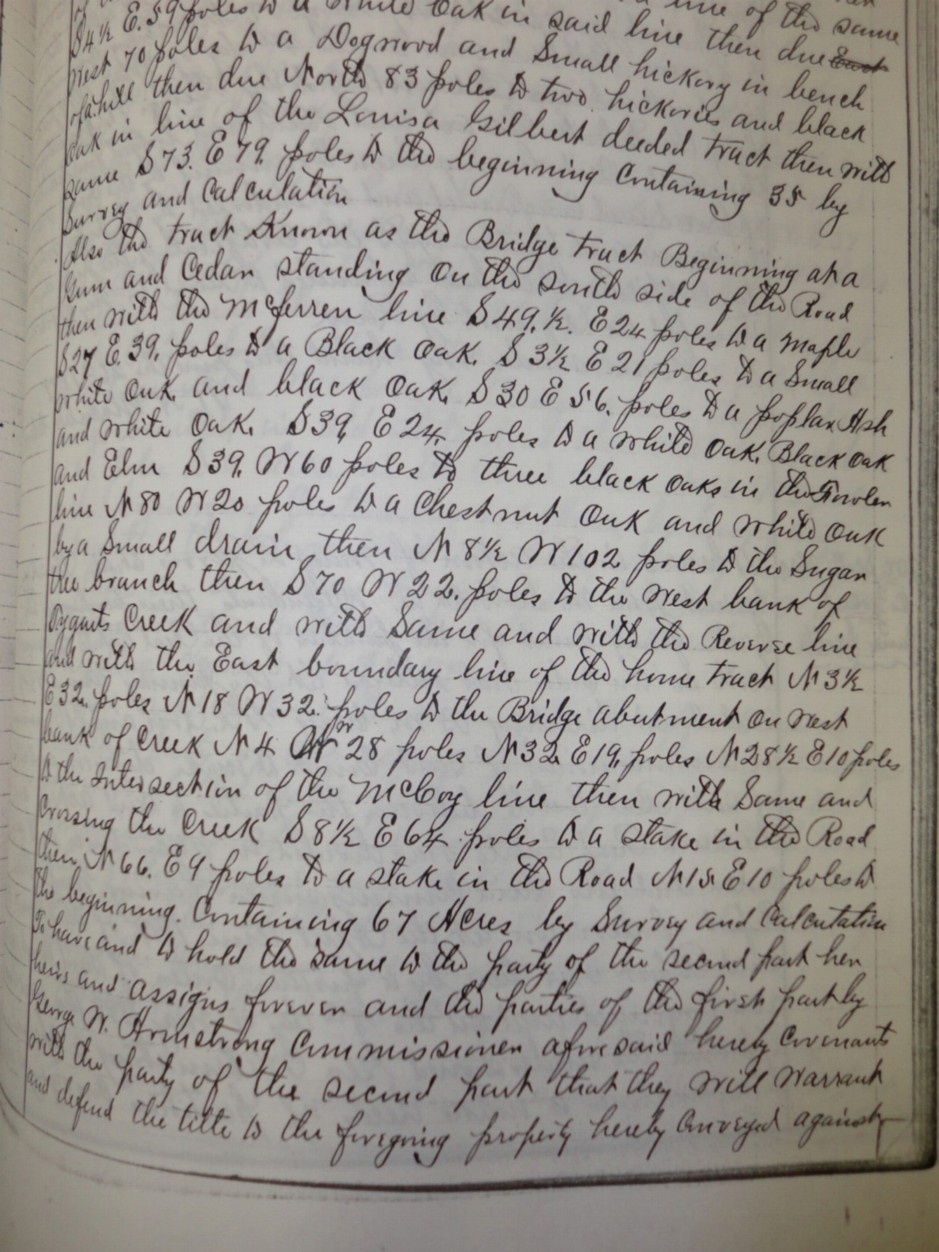 line of the same
S4½ E. 59 poles to a White Oak in said line then due East
West 70 poles to a Dogwood and Small hickory in bench
of a hill then due North 83 poles to two hickories and black
Oak in line of the Louisa Gilbert deeded tract then with
same S73. E79. poles to the beginning Containing 35 by
Survey and Calculation
Also the tract Known as the Bridge tract Beginning at a
Gum and Cedar standing on the south side of the Road
then with the McFerren line S49.½. E24 poles to a maple
S27 E.39. poles to a Black Oak. S3½ E21 poles to a Small
white Oak and black Oak. S30 E56. poles to a poplar Ash
and white Oak. S39, E24. poles to a white Oak, Black Oak
and Elm S39, W60 poles to three black Oaks in the Fowler
line N80 W20 poles to a Chestnut Oak and white Oak
by a Small drain then N8½ W102 poles to the Sugar
tree branch then S70 W22. poles to the West bank of
Tygarts Creek and with Same and with the Reverse line
and with the East boundary line of the home tract N3½
E32. poles N18 W32. poles to the Bridge abutment on west
bank of Creek N4 W 28 poles N32 E19, poles N28½ E10 poles
to the Intersection of the McCoy line then with Same and
Crossing the Creek S8½ E64 poles to a stake in the Road
then N66. E9 poles to a stake in the Road N15 E10 poles to
the beginning. Containing 67 Acres by Survey and Calculation
To have and to hold the same to the party of the second part her
heirs and assigns forever and the parties of the first part by
George W. Armstrong Commissioner aforesaid hereby Covenants
with the party of the second part that they will Warrant
and defend the title to the foregoing property hereby Conveyed against